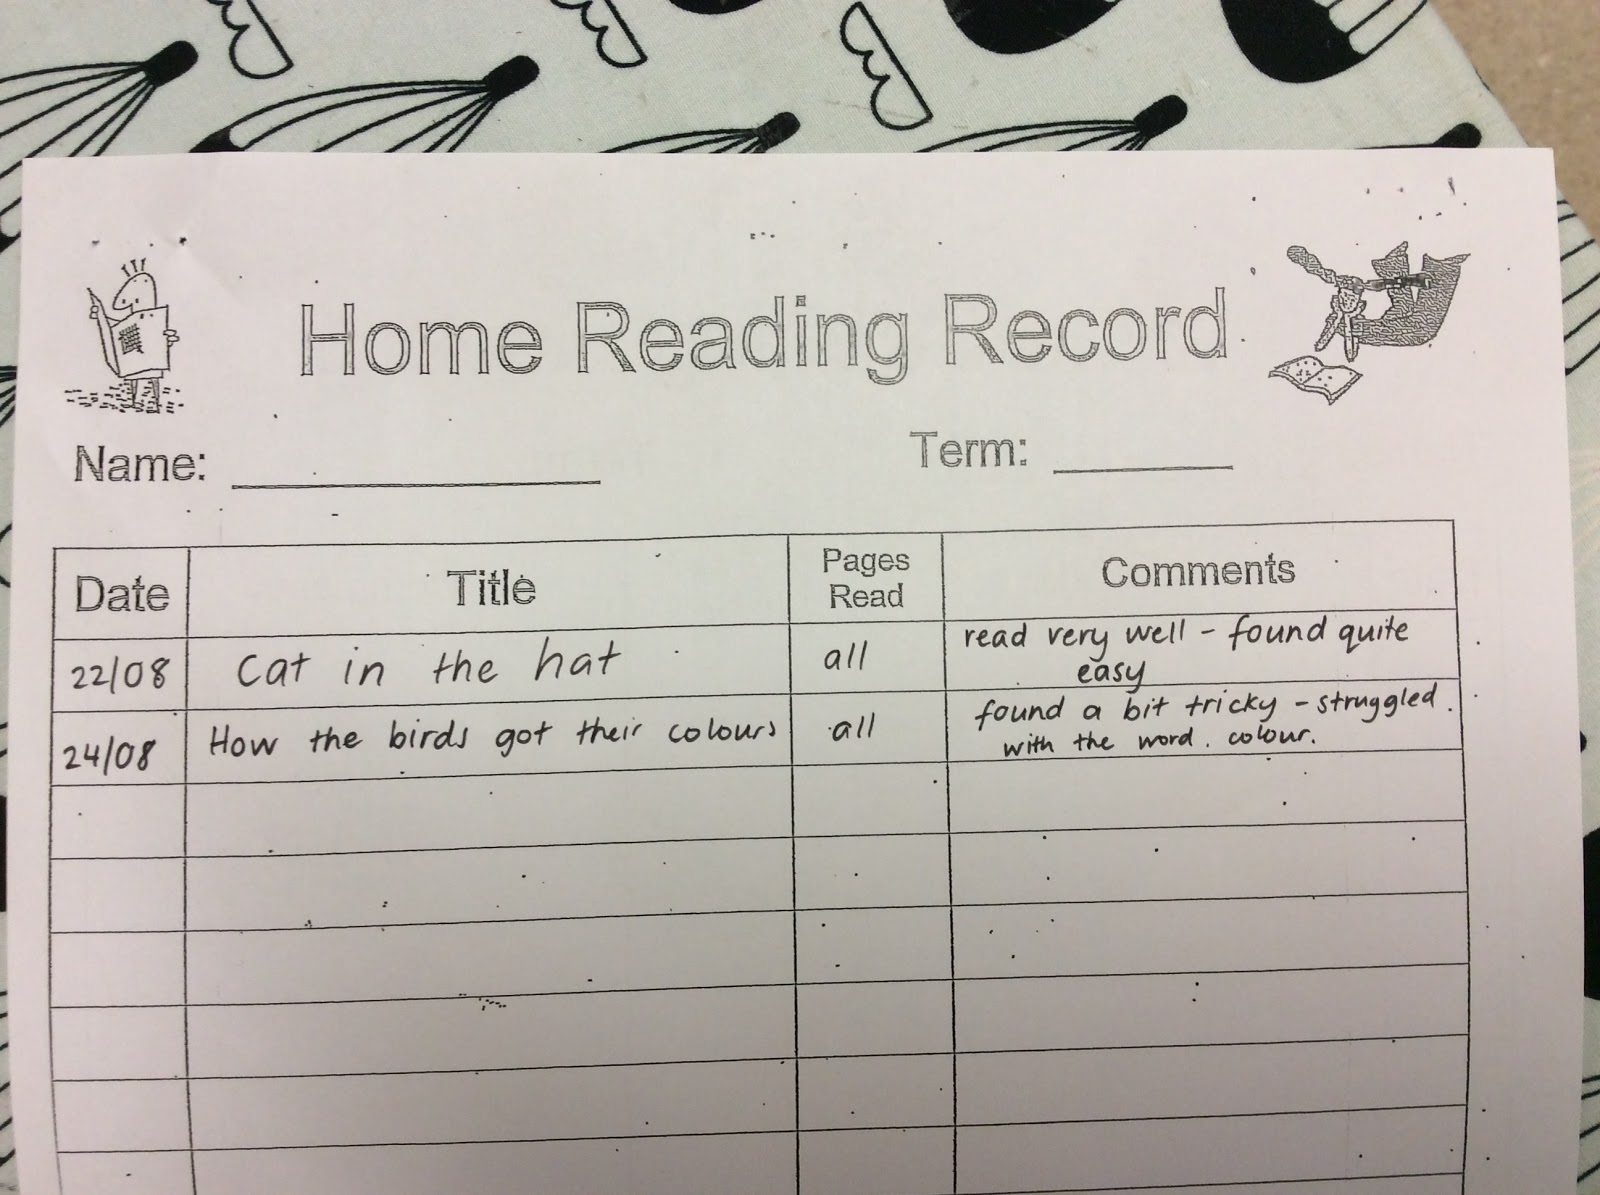 Home Reading Record
Name:
Term:
Date Title Pages Read Comments
22/08 Cat in the hat all read very well - found quite easy
24/08 How the birds got their colours all found a bit tricky - struggled with the word colour.